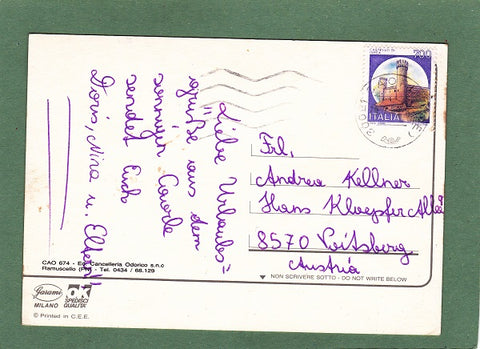 Liebe Urlaubs=
grüße aus dem
sonnigen Caorle
sendet Euch
Doris, Nina u. Eltern!
700
ITALIA
Frl.
Andrea Kellner
Hans Kloepfer Allee
8570 Voitsberg
Austria
CAO 674 - Ed. Cancelleria Odorico s.n.c
Ramuscello (PN) - Tel. 0434 / 68.129
NON SCRIVERE SOTTO - DO NOT WRITE BELOW
Garami
MILANO
OK
SPEDISCI
QUALITA'
© Printed in C.E.E.